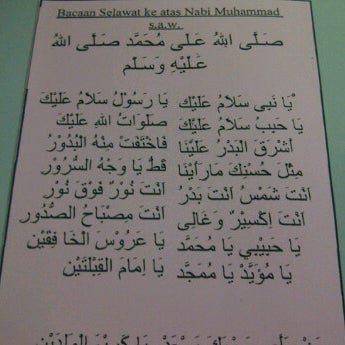 Bacaan Selawat ke atas Nabi Muhammad
s.a.w.
صَلَّى اللهُ عَلَى مُحَمَّد صَلَّى اللهُ
عَلَيْهِ وَسَلَّم
يَا نَبِى سَلَامُ عَلَيْكَ يَا رَسُوْلُ سَلَامُ عَلَيْكَ
يَا حَبِيبُ سَلَامُ عَلَيْكَ صَلَوَاتُ اللهِ عَلَيْكَ
أَشْرَقَ الْبَدْرُ عَلَيْنَا فَاخْتَفَتْ مِنْهُ الْبُدُوْرُ
مِثْلَ حُسْنِكَ مَارَأَيْنَا قَطُّ يَا وَجْهَ السُّرُوْرِ
اَنْتَ شَمْسُ اَنْتَ بَدْرُ اَنْتَ نُوْرُ فَوْقَ نُوْرُ
اَنْتَ اِكْسِيْرُ وَغَالِى اَنْتَ مِصْبَاحُ الصُّدُوْرِ
يَا حَبِيْبِي يَا مُحَمَّد يَا عَرُوْسَ الْخَافِقَيْنِ
يَا مُؤَيَّدْ يَا مُمَجَّد يَا اِمَامَ الْقِبْلَتَيْنِ